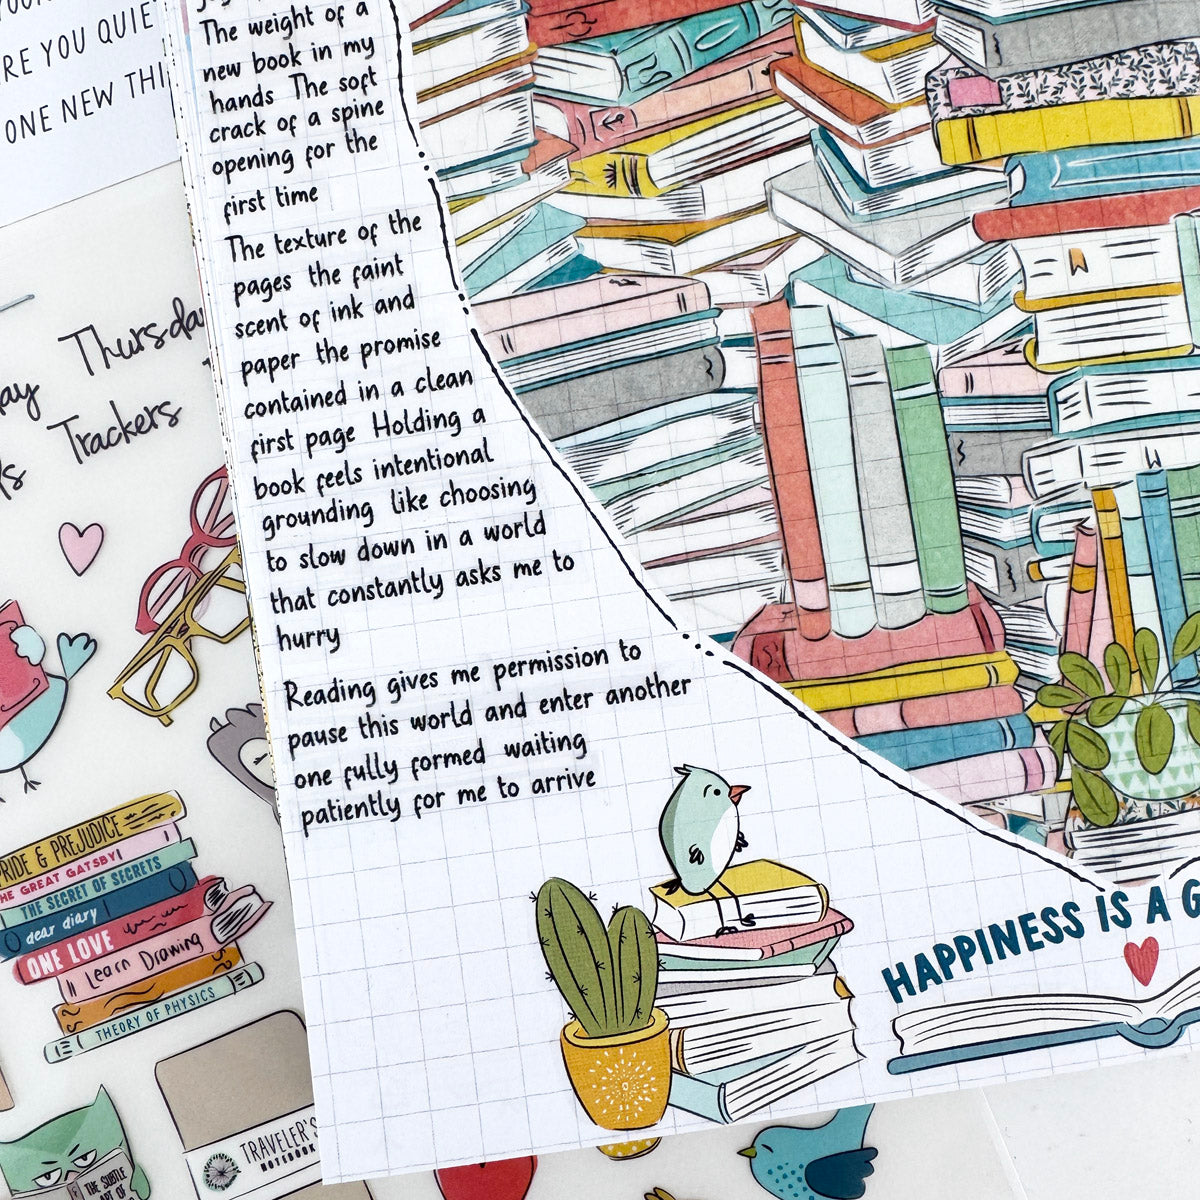 RE YOU QUIE
ONE NEW THI
The weight of a
new book in my
hands The soft
crack of a spine
opening for the
first time
The texture of the
pages the faint
scent of ink and
paper the promise
contained in a clean
first page Holding a
book feels intentional
grounding like choosing
to slow down in a world
that constantly asks me to
hurry
Reading gives me permission to
pause this world and enter another
one fully formed waiting
patiently for me to arrive
Thursda
ay
Trackers
PRIDE & PREJUDICE
THE GREAT GATSBY
THE SECRET OF SECRETS
dear diary
ONE LOVE
Learn Drawing
THEORY OF PHYSICS
TRAVELER'S
NOTEBOOK
THE SUBTLE
ART OF
HAPPINESS IS A G